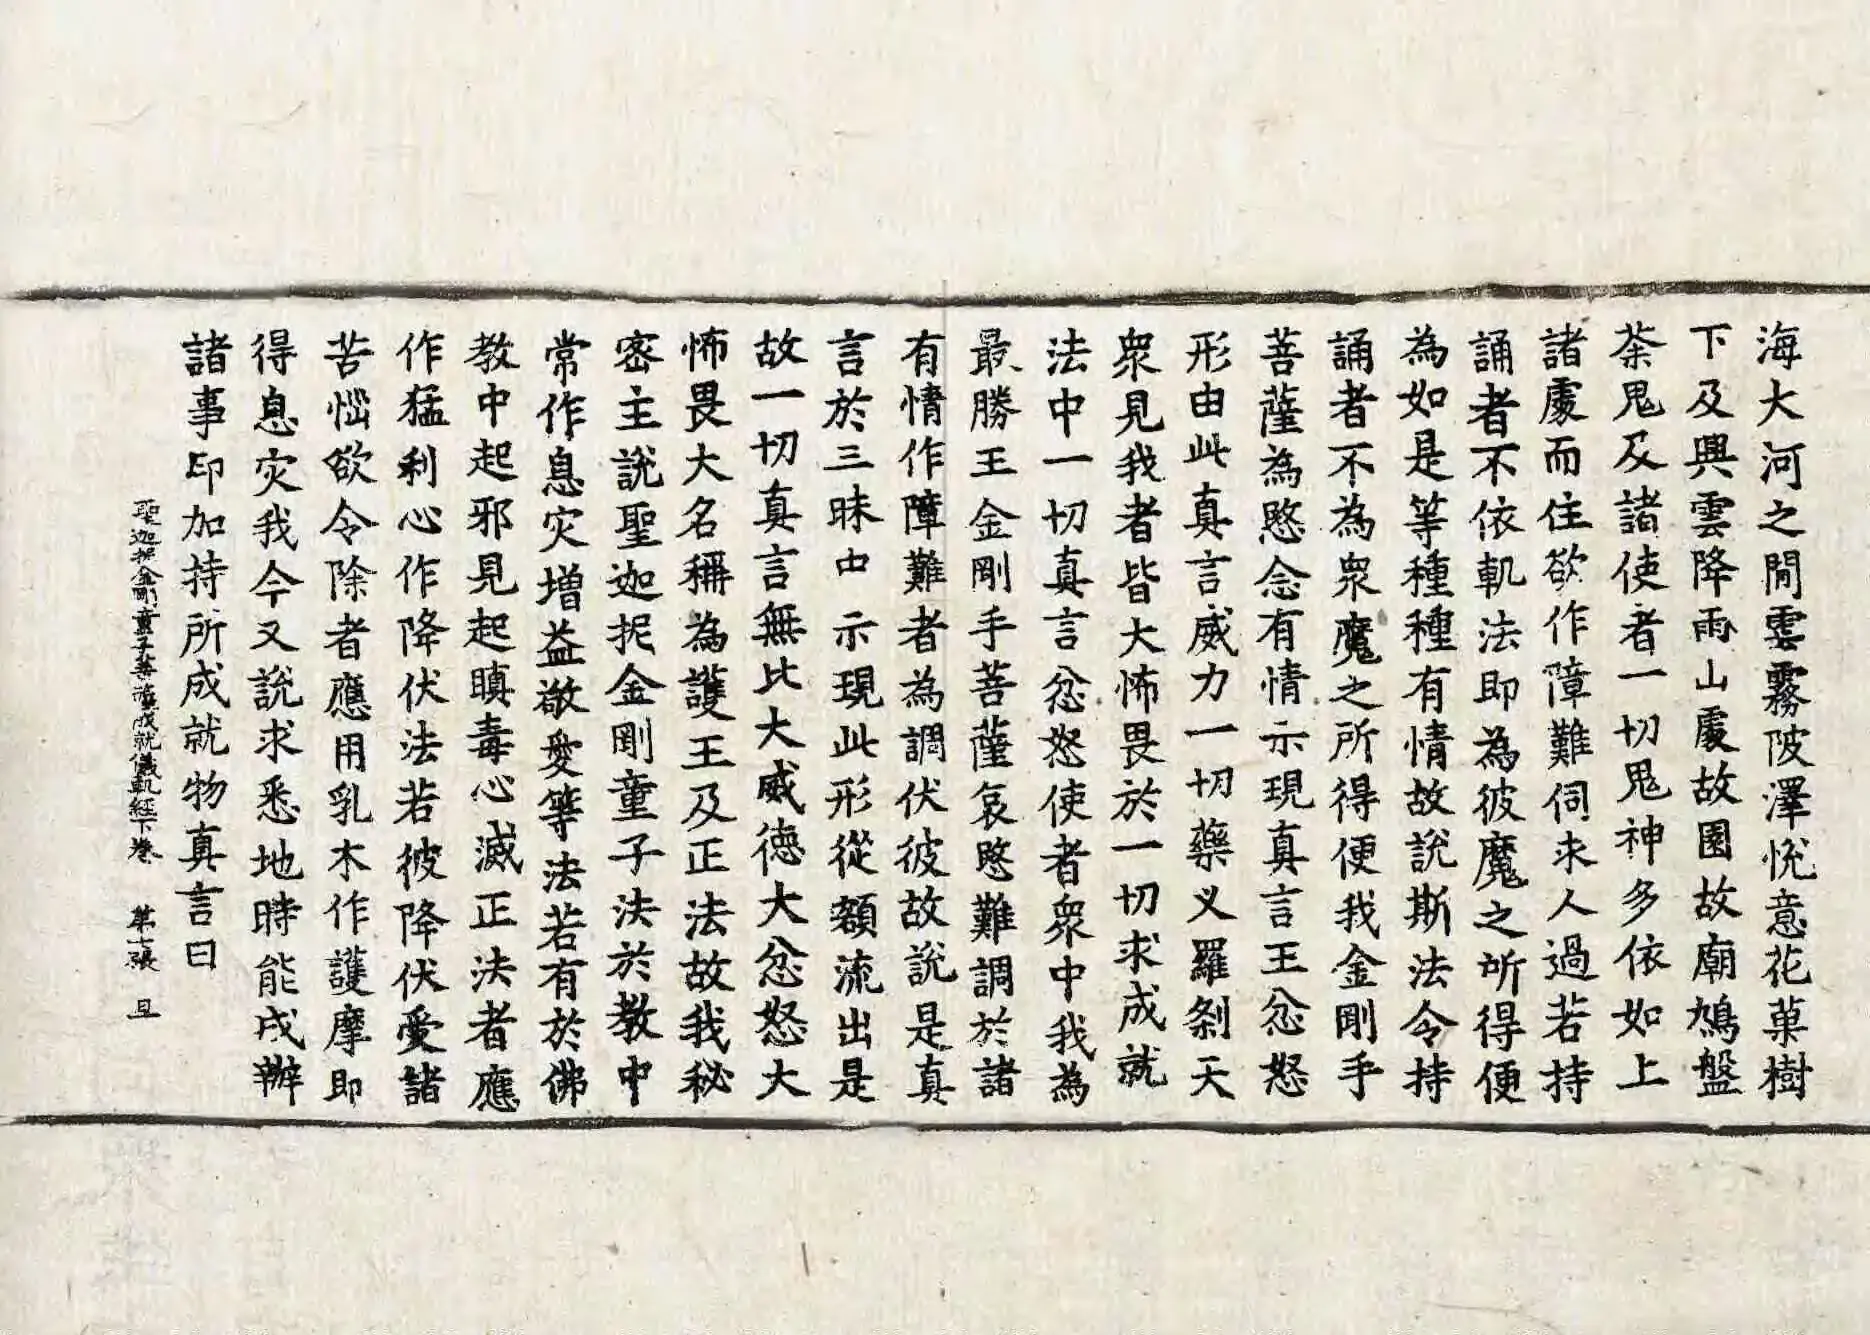 海大河之閒雲霧陂澤悅意花菓樹
下及興雲降雨山處故園故廟鳩盤
荼鬼及諸使者一切鬼神多依如上
諸處而住欲作障難伺求人過若持
誦者不依軌法即為彼魔之所得便
為如是等種種有情故說斯法令持
誦者不為衆魔之所得便我金剛手
菩薩為愍念有情示現真言王忿怒
形由此真言威力一切藥义羅剎天
衆見我者皆大怖畏於一切求成就
法中一切真言忿怒使者衆中我為
最勝王金剛手菩薩哀愍難調於諸
有情作障難者為調伏彼故說是真
言於三昧中示現此形從額流出是
故一切真言無比大威德大忿怒大
怖畏大名稱為護王及正法故我秘
密主說聖迦抳金剛童子法於教中
常作息灾增益敬愛等法若有於佛
教中起邪見起瞋毒心滅正法者應
作猛利心作降伏法若彼降伏愛諸
苦惱欲令除者應用乳木作護摩即
得息灾我今又說求悉地時能成辦
諸事印加持所成就物真言曰
聖迦抳金剛童子菩薩成就儀軌經下卷 第七張 旦